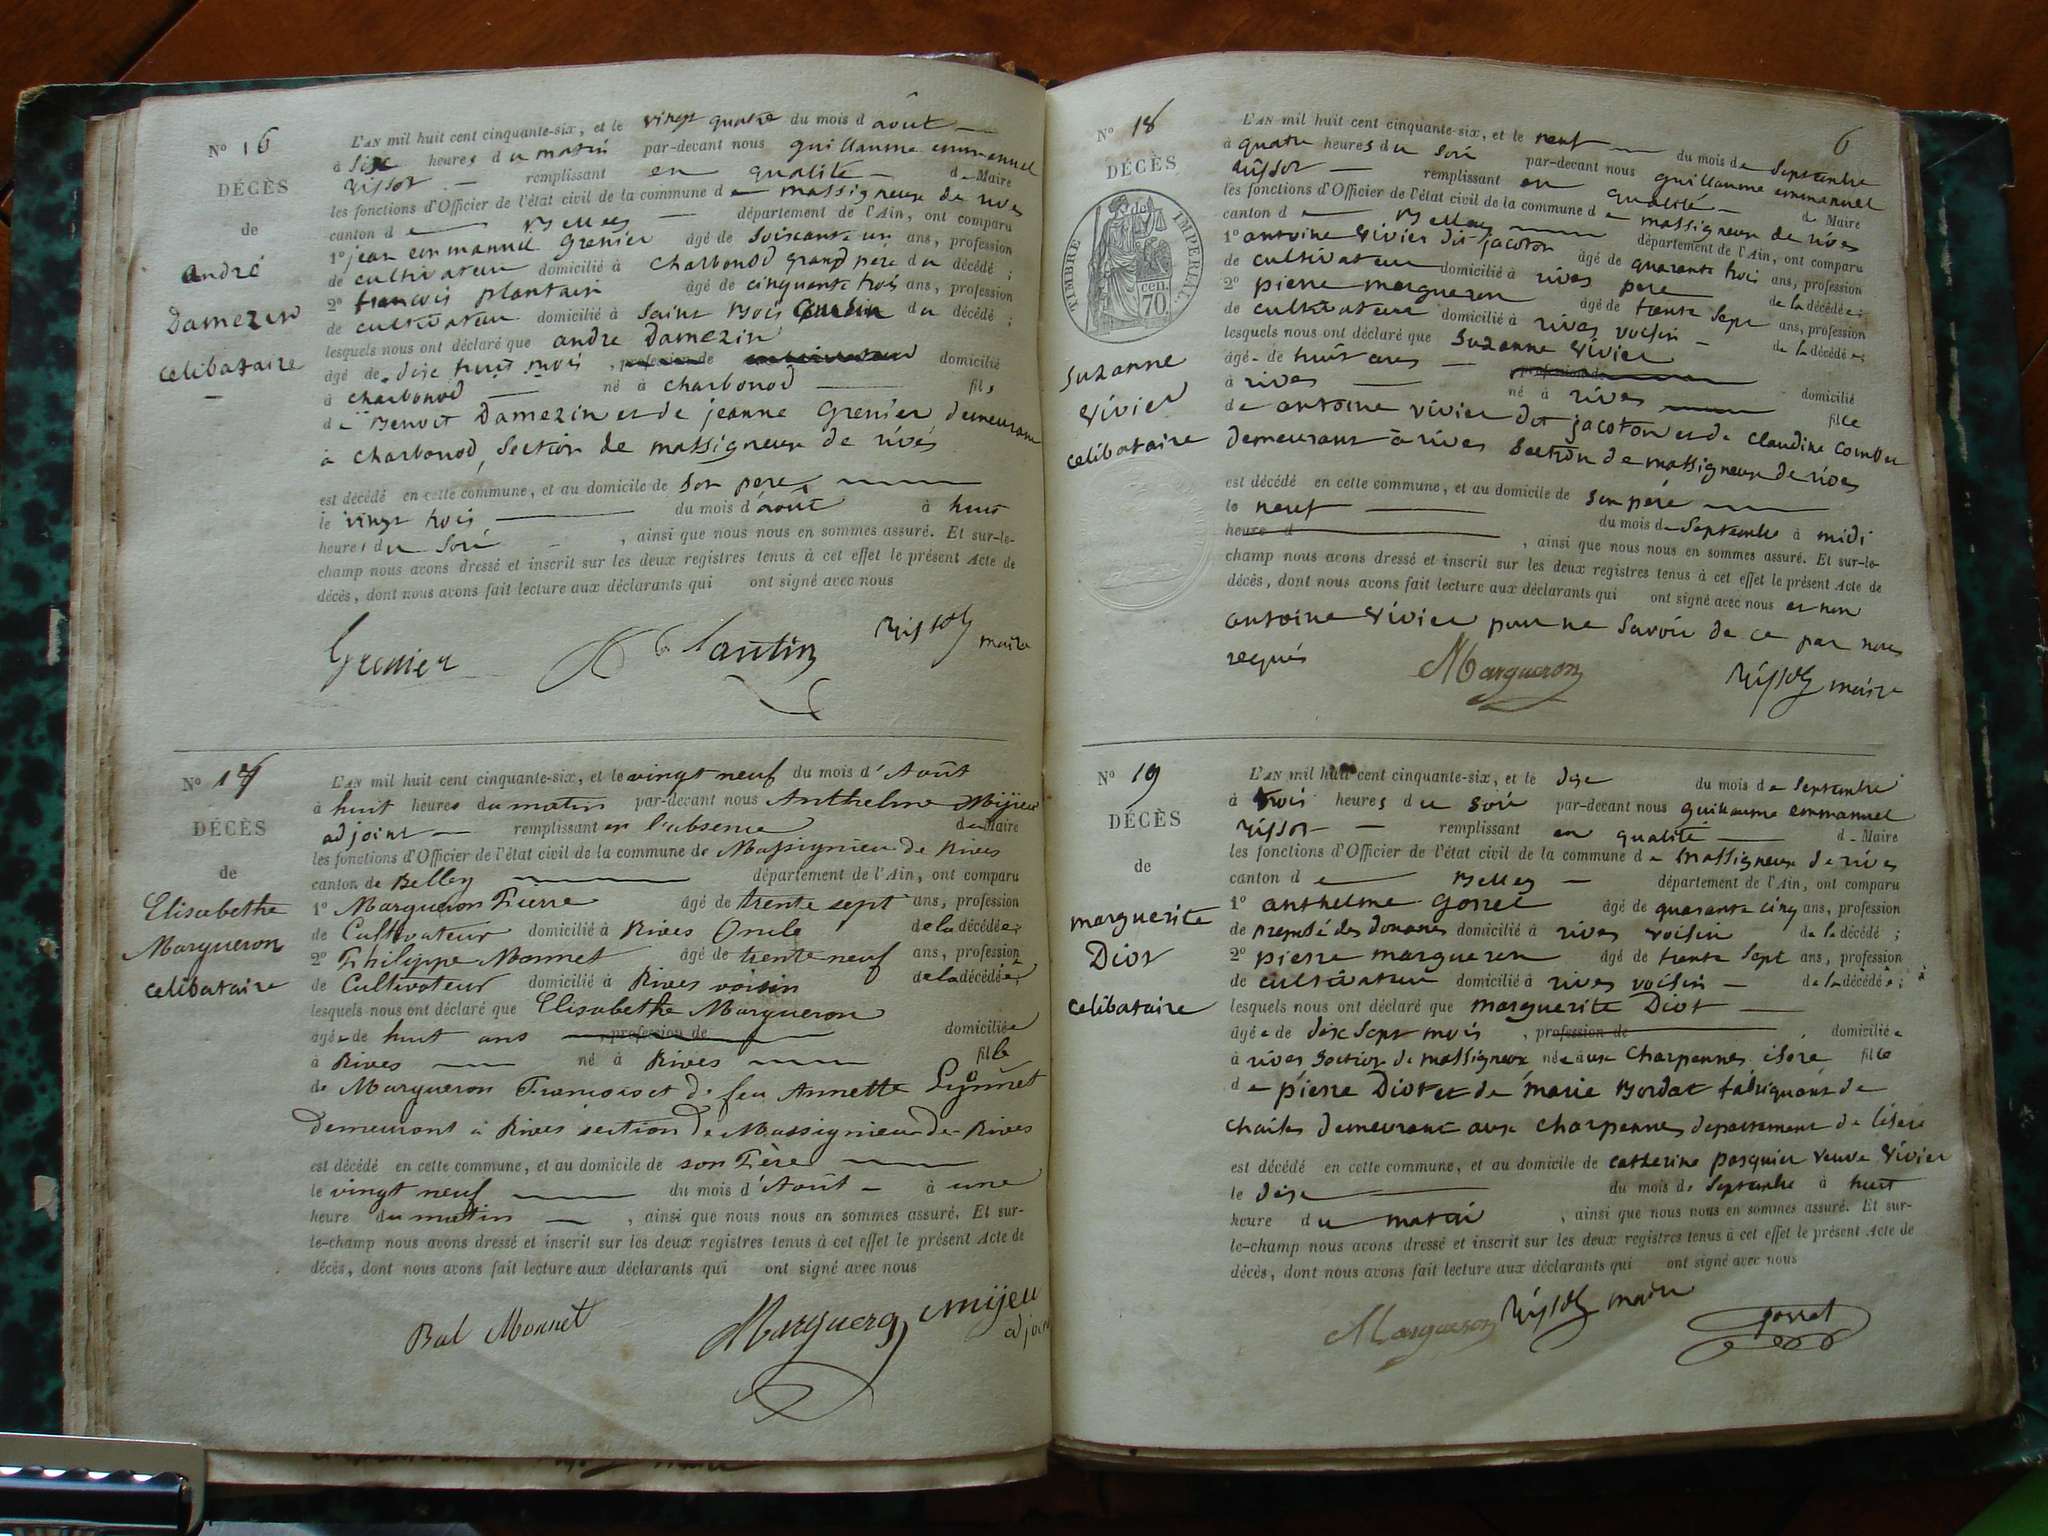 N° 16
DÉCÈS
de
andré
Damezin
celibataire
L'AN mil huit cent cinquante-six, et le vingt quatre du mois d août
à six heures du matin par-devant nous guillaume emmanuel
rissot remplissant en qualité de Maire
les fonctions d'Officier de l'état civil de la commune de massigneux de rives
canton de Belley département de l'Ain, ont comparu
1° jean emmanuel grenier âgé de soixante un ans, profession
de cultivateur domicilié à charbonod grand père du décédé ;
2° francois plantain âgé de cinquante trois ans, profession
de cultivateur domicilié à Saint Bois cousin du décédé ;
lesquels nous ont déclaré que andre Damezin
âgé de dix huit mois , profession de domicilié
à charbonod né à charbonod fils
de Benoit Damezin et de jeanne Grenier demeurant
à charbonod, Section de massigneux de rives
est décédé en cette commune, et au domicile de son pere
le vingt trois du mois d'août à huit
heures du soir , ainsi que nous nous en sommes assuré. Et sur-le-
champ nous avons dressé et inscrit sur les deux registres tenus à cet effet le présent Acte de
décès, dont nous avons fait lecture aux déclarants qui ont signé avec nous
Grenier Plantin Rissot maire
N° 17
DÉCÈS
de
Elisabethe
Margueron
celibataire
L'AN mil huit cent cinquante-six, et le vingt neuf du mois d'Août
à huit heures du matin par-devant nous Anthelme Mijieu
adjoint remplissant en l'absence du Maire
les fonctions d'Officier de l'état civil de la commune de Massignieu de Rives
canton de Belley département de l'Ain, ont comparu
1° Margueron Pierre âgé de trente sept ans, profession
de Cultivateur domicilié à Rives Oncle de la décédée ;
2° Philippe Monnet âgé de trente neuf ans, profession
de Cultivateur domicilié à Rives voisin de la décédée ;
lesquels nous ont déclaré que Elisabethe Margueron
âgée de huit ans , profession de domiciliée
à Rives né à Rives fille
de Margueron Francois et de feu Annette
demeurant à Rives section de Massignieu de Rives
est décédé en cette commune, et au domicile de son Père
le vingt neuf du mois d'Août à une
heure du matin , ainsi que nous nous en sommes assuré. Et sur-
le-champ nous avons dressé et inscrit sur les deux registres tenus à cet effet le présent Acte de
décès, dont nous avons fait lecture aux déclarants qui ont signé avec nous
Bal Monnet Margueron mijeu
adjoint
6
N° 18
DÉCÈS
TIMBRE IMPERIAL
70 cen.
Suzanne
vivier
celibataire
L'AN mil huit cent cinquante-six, et le neuf du mois de septembre
à quatre heures du soir par-devant nous guillaume emmanuel
rissot remplissant en qualité de Maire
les fonctions d'Officier de l'état civil de la commune de massigneux de rives
canton de Belley département de l'Ain, ont comparu
1° antoine vivier dit jacoton âgé de quarante trois ans, profession
de cultivateur domicilié à rives pere de la décédée ;
2° pierre margueron âgé de trente sept ans, profession
de cultivateur domicilié à rives voisin de la décédée ;
lesquels nous ont déclaré que Suzanne vivier
âgée de huit ans profession de domicilié
à rives né à rives fille
de antoine vivier dit jacoton et de claudine
demeurant à rives Section de massigneux de rives
est décédé en cette commune, et au domicile de son péré
le neuf du mois de septembre à midi
heure d , ainsi que nous nous en sommes assuré. Et sur-le-
champ nous avons dressé et inscrit sur les deux registres tenus à cet effet le présent Acte de
décès, dont nous avons fait lecture aux déclarants qui ont signé avec nous et non
antoine vivier pour ne savoir de ce par nous
requis Margueron Rissot maire
N° 19
DÉCÈS
de
marguerite
Diot
celibataire
L'AN mil huit cent cinquante-six, et le dix du mois de septembre
à trois heures du soir par-devant nous guillaume emmanuel
rissot remplissant en qualité de Maire
les fonctions d'Officier de l'état civil de la commune de massigneux de rives
canton de Belley département de l'Ain, ont comparu
1° anthelme gorret âgé de quarante cinq ans, profession
de preposé des douanes domicilié à rives voisin de la décédé ;
2° pierre margueron âgé de trente sept ans, profession
de cultivateur domicilié à rives voisin de la décédée ;
lesquels nous ont déclaré que marguerite Diot
âgée de dix sept mois , profession de domiciliée
à rives Section de massigneux née aux charpennes isére fille
de pierre Diot et de marie Bordat fabriquant de
chailes demeurant aux charpennes departement de l'isere
est décédé en cette commune, et au domicile de catherine pasquier veuve vivier
le dix du mois de septembre à huit
heure du matin , ainsi que nous nous en sommes assuré. Et sur-
le-champ nous avons dressé et inscrit sur les deux registres tenus à cet effet le présent Acte de
décès, dont nous avons fait lecture aux déclarants qui ont signé avec nous
Margueron Rissot maire gorret